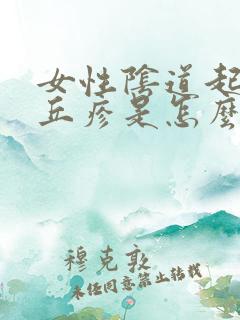 女性陰道起
丘疹是怎麽
穆克敦
未经同意禁止转载